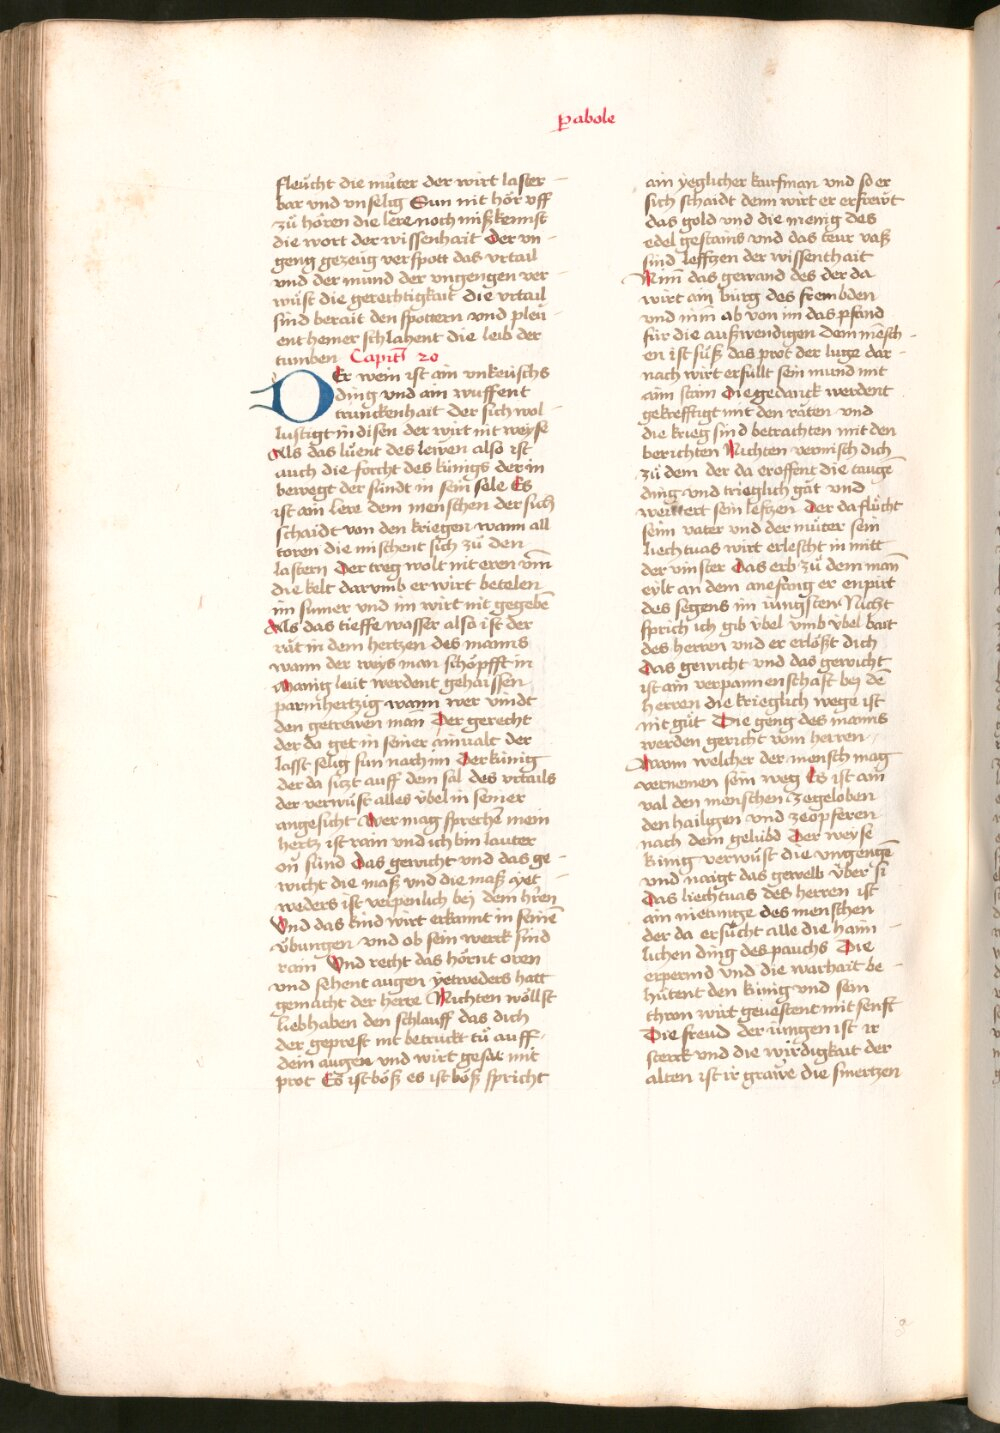 Pabole
fleücht die müter der wirt laster
bar vnd vnselig Sun nit hör vff
zü hören die lere noch mißkennst
die wort der wissenhait Der vn
geng gezeüg verspott das vrtail
vnd der mund der vngengen ver
wüst die gerechtigkait die vrtail
sind berait den spottern vnd pleü
ent hemer schlahent die leib der
tumben Capitl 20
DEr wein ist ain vnkeüschs
ding vnd ain wuffent
trunckenhait der sich wol
lustigt in disen der wirt nit weyse
Als das lüent des lewen also ist
auch die forcht des künigs der in
bewegt der sündt in sein sele Es
ist ain lere dem menschen der sich
schaidt von den kriegen wann all
toren die mischent sich zü den
lastern Der treg wolt nit eren vm̄
die kelt darumb er wirt betelen
im sumer vnd im wirt nit gegebē
Als das tieffe wasser also ist der
rät in dem hertzen des manns
wann der weys man schöpfft in
Manig leüt werdent gehaissen
parmhertzig wann wer vindt
den getrewen man̄ Der gerecht
der da get in seiner ainualt der
lasst selig sun nach im Der künig
der da sitzt auff dem sal des vrtails
der verwüst alles übel in seiner
angesicht Wer mag sprechē mein
hertz ist rain vnd ich bin lauter
on sünd Das gewicht vnd das ge
wicht die maß vnd die maß yet
weders ist verpenlich bej dem hr̄en
Vnd das kind wirt erkannt in seinē
übungen vnd ob sein werck sind
rain Vnd recht das hörnt oren
vnd sehent augen yetweders hatt
gemacht der herre Nichten wöllst
liebhaben den schlauff das dich
der geprest nit betruckt tü auff
dein augen vnd wirt gesat mit
prot Es ist böß es ist böß spricht
ain yeglicher kaufman vnd so er
sich schaidt denn wirt er erfrewt
das gold vnd die menig des
edel gestains vnd das teur vaß
sind leffzen der wissenthait
Nim̄ das gewand des der da
wirt ain bürg des frembden
vnd nim̄ ab von im das pfand
für die außwendigen dem mēsch
en ist süß das prot der luge dar
nach wirt erfüllt sein mund mit
aim stain Die gedanck werdent
gekrefftigt mit den räten vnd
die krieg sind betrachten mit den
berichten Nichten vermisch dich
zü dem der da eroffent die tauge
ding vnd trieglich gät vnd
weittert sein lefzen Der da flücht
seim vater vnd der müter sein
liechtuas wirt erlescht in mitt
der vinster Das erb zü dem man̄
eylt an dem anefang er enpirt
des segens im iungsten Nicht
sprich ich gib übel vmb übel bait
des herren vnd er erlößt dich
Das gewicht vnd das gewicht
ist ain verpannenschaft bej dē
herren die krieglich wege ist
nit güt Die geng des manns
werden gericht vom herren
Wann welcher der mensch mag
vernemen sein weg Es ist ain
val den menschen zegeloben
den hailigen vnd zeopferen
nach dem gelübd Der weyse
künig verwüst die vngengē
vnd naigt das gewelb über si
Das liechtuas des herren ist
ain des menschen
der da ersücht alle die haim
lichen ding des pauchs Die
erpermd vnd die warhait be
hütent den künig vnd sein
thron wirt geuestent mit senft
Die freud der iungen ist ir
sterck vnd die wirdigkait der
alten ist ir grawe die smertzen